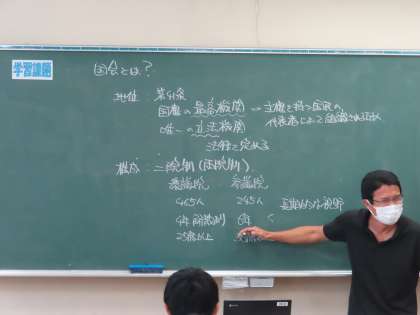 学習課題
国会とは？
地位：第41条
国権の最高機関 → 主権を持つ国民の
代表者によって組織されるから
唯一の立法機関
法律を定める
構成：二院制(両院制)
衆議院 参議院
465人 245人 長期的な視野
4年 解散 6年
25歳以上